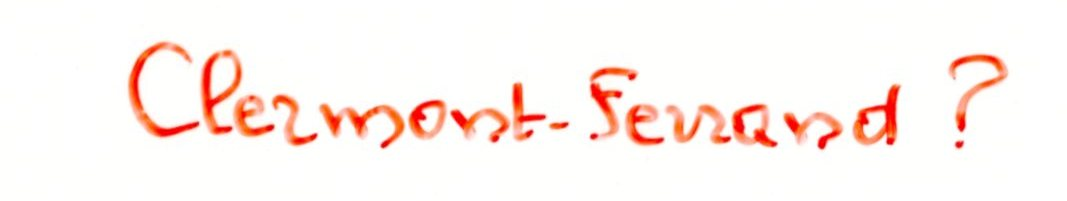 Clermont-Ferrand ?